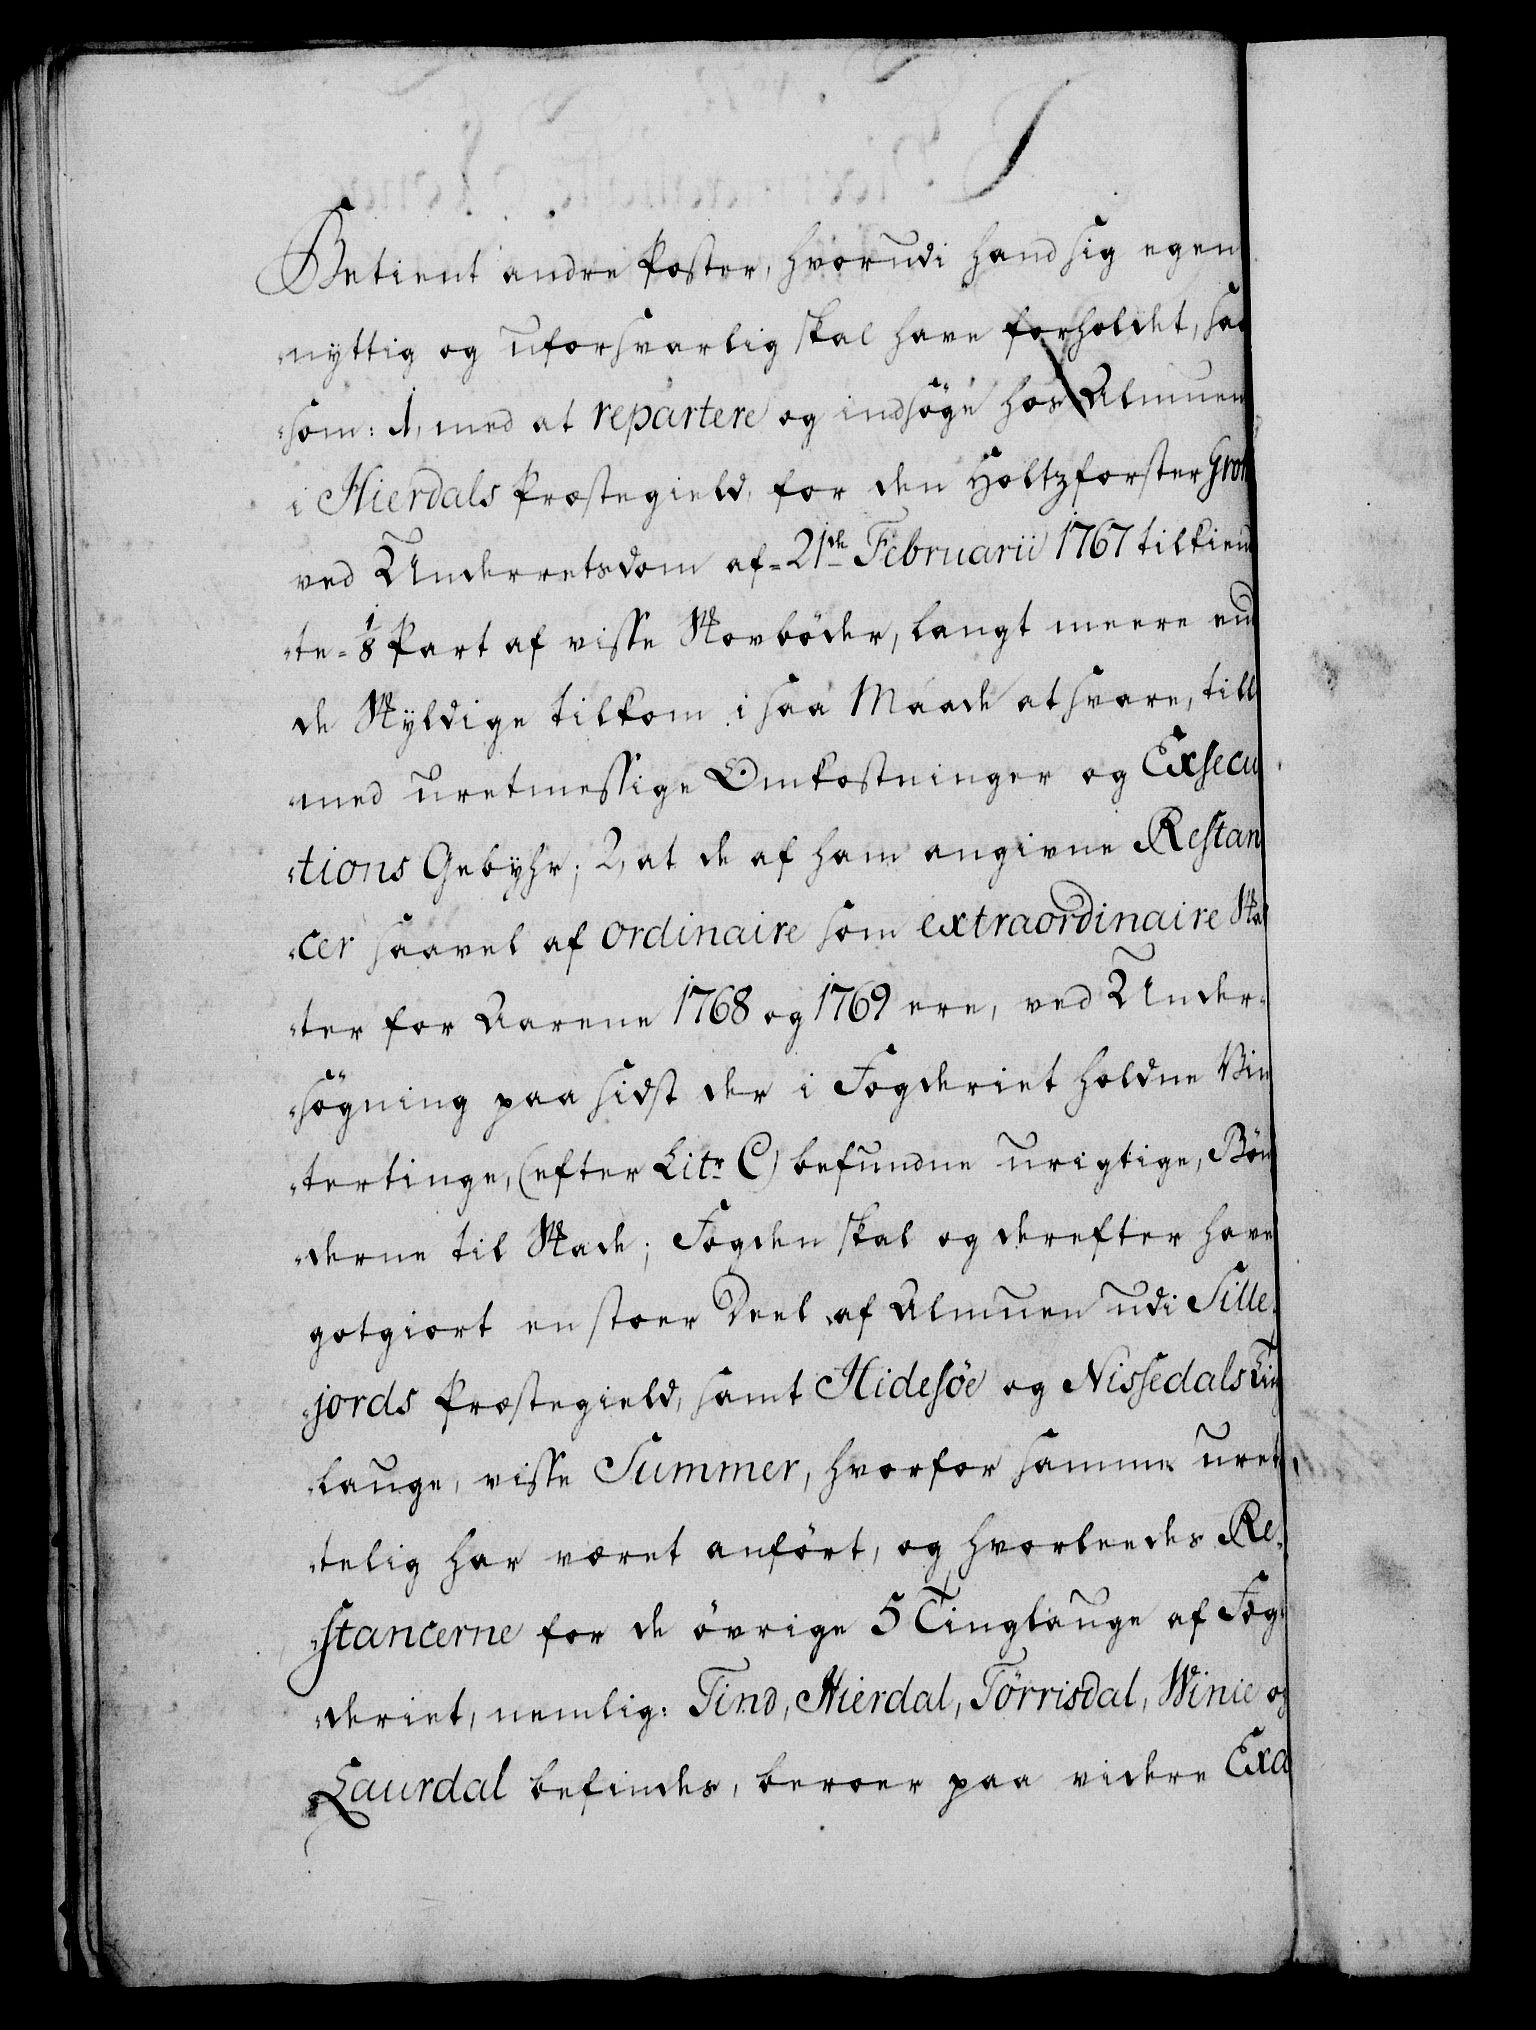 Betient andre Poster, hvorudi hand sig egen
nyttig og uforsvarlig skal have forholdet, saa
som: 1, med at repartere og indsøge hos Almuen
i Hierdals Præstegield, for den Holtzforster
ved Underretsdom af 21de Februarii 1767 tilkien
te 1/8 Part af visse Skovbøder, langt meere end
de Skyldige tilkom i saa Maade at svare, till
med uretmessige Omkostninger og Exsecu
tions Gebyhr; 2, at de af ham angivne Restan
cer saavel af ordinaire som extraordinaire Skat
ter for Aarene 1768 og 1769 ere, ved Under-
søgning paa sidst der i Fogderiet holdne Vin
tertinge, (efter Litr. C) befundne urigtige, Bøn
derne til Skade; Fogden skal og derefter have
gotgiort en stoer Deel af Almuen udi Sille-
jords Præstegield, samt Hidesøe og Nissedals Ting
lauge, visse Summer, hvorfor samme uret
telig har været anført, og hvorleedes Re-
stancerne for de øvrige 5 Tinglauge af Fog-
deriet, nemlig: Tind, Hierdal, Tørrisdal, Winie og
Laurdal befindes, beroer paa videre Exa